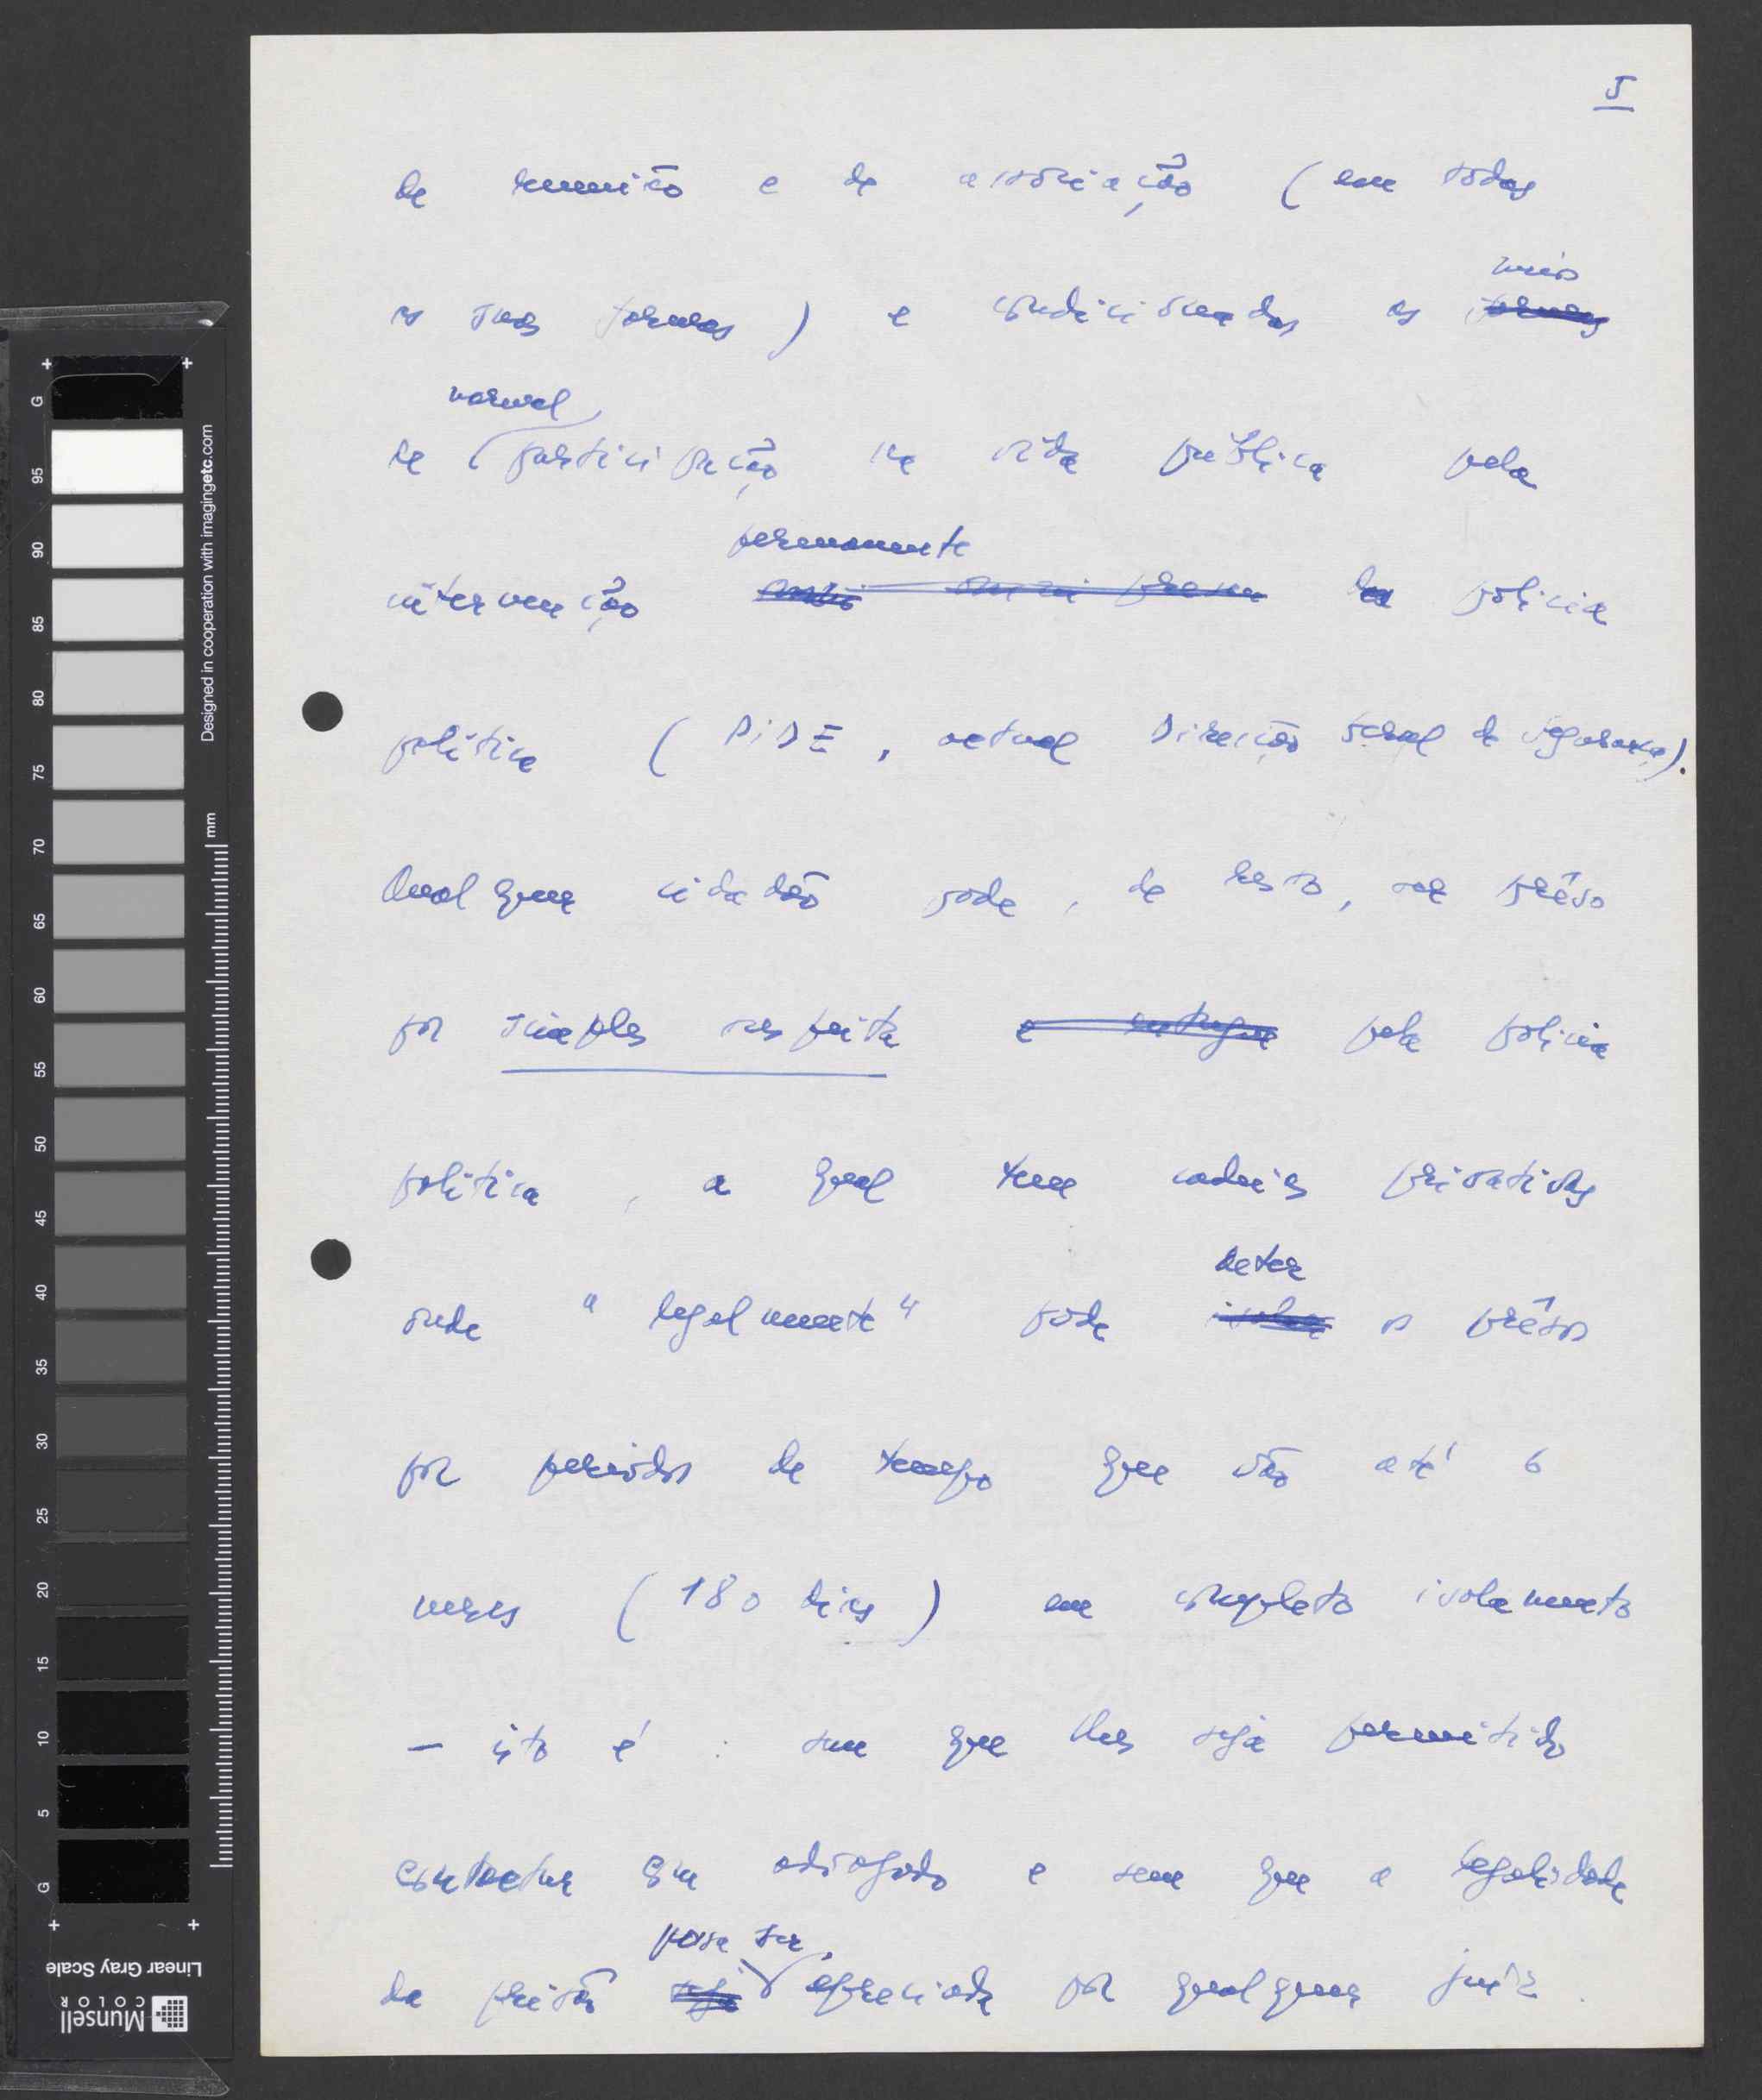 5
de reunião e de associação (em todas
meios
as suas formas) e condicionados os formas
normal
de participação na vida pública pela
permanente
intervenção da polícia
política (PIDE, actual Direcção Geral de Segurança).
Qualquer cidadão pode, de resto, ser prêso
por simples suspeita e entregue pela polícia
política, a qual tem cadeias privativas
deter
onde "legalmente" pode isolar o prêso
por períodos de tempo que vão até 6
meses (180 dias) em completo isolamento
— isto é: sem que lhes seja permitido
contactar com advogado e sem que a legalidade
possa ser
da prisão seja apreciada por qualquer juíz.
G
95
90
85
80
75
70
65
60
55
50
45
40
35
30
25
20
15
10
5
G
mm
Designed in cooperation with imagingetc.com
Linear Gray Scale
Munsell
COLOR